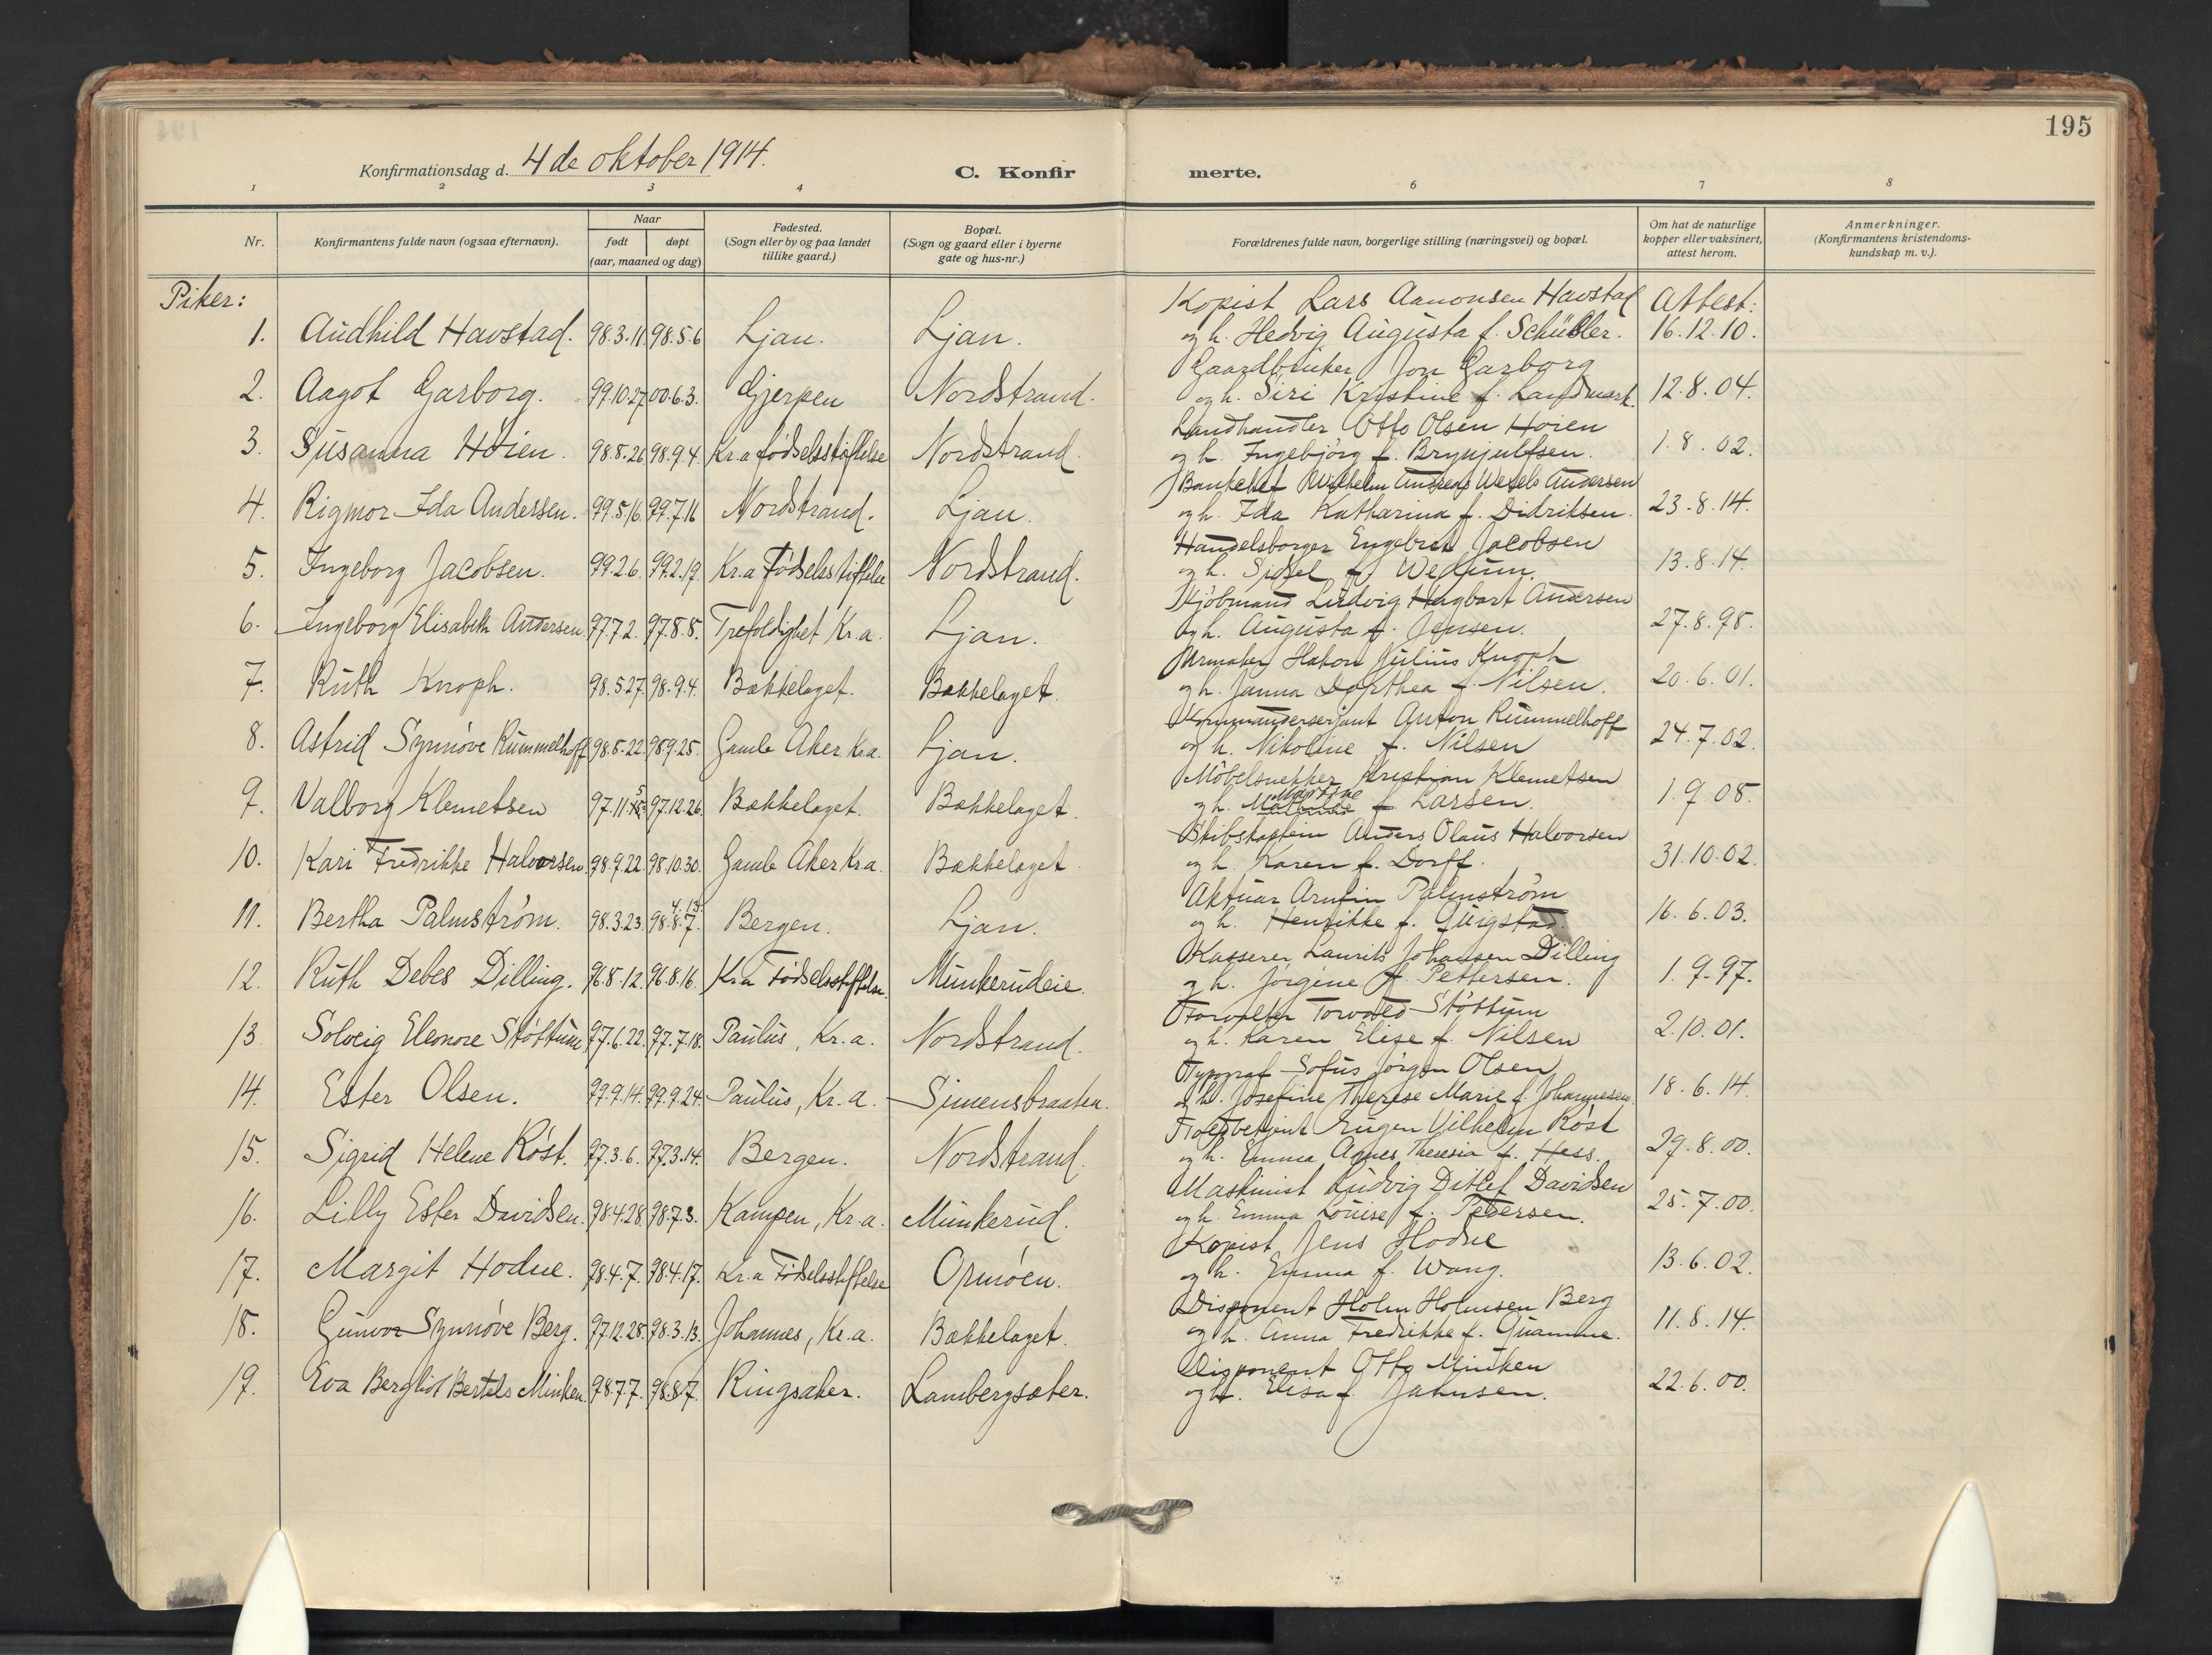 195
Konfirmationsdag d. 4 de oktober 1914.
C. Konfirmerte.
1 2 3 4 6 7 8
Nr.
Konfirmantens fulde navn (ogsaa efternavn).
Naar
født døpt
(aar, maaned og dag)
Fødested.
(Sogn eller by og paa landet
tillike gaard.)
Bopæl.
(Sogn og gaard eller i byerne
gate og hus-nr.)
Forældrenes fulde navn, borgerlige stilling (næringsvei) og bopæl.
Om hat de naturlige
kopper eller vaksinert,
attest herom.
Anmerkninger.
(Konfirmantens kristendoms-
kundskap m. v.).
Piker:
Kopist Lars Aamonsen Havstad Attest:
1. Audhild Havstad. 98.3.11 98.5.6 Ljan. Ljan. og h. Hedvig Augusta f. Schüssler. 16.12.10.
Gaardbruker Jon Garborg
2. Aagot Garborg. 99.10.27 00.6.3. Gjerpen Nordstrand. og h. Siri Kristine f. Landmark. 12.8.04.
Landhandler Otto Olsen Høien
3. Susanna Høien. 98.8.26 98.9.4. Kr.a fødselsstiftelse Nordstrand. og h. Ingebjörg f. Brynjulfsen. 1.8.02.
Bankchef Wilhelm Andreas Wesels Andersen
4. Rigmor Ida Andersen. 99.5.16. 99.7.16 Nordstrand. Ljan. og h. Ida Katharina f. Didriksen. 23.8.14.
Handelsborger Engebret Jacobsen
5. Ingeborg Jacobsen. 99.2.6. 99.2.19. Kr.a Fødselsstiftelse Nordstrand. og h. Sidsel f. Wedum. 13.8.14.
Kjøbmand Ludvig Hagbart Andersen
6. Ingeborg Elisabeth Andersen 97.7.2. 97.8.8. Trefoldighet Kr.a. Ljan. og h. Augusta f. Jensen. 27.8.98.
Urmaker Hakon Julius Knoph
7. Ruth Knoph. 98.5.27. 98.9.4. Bækkelaget. Bækkelaget. og h. Janna Dorthea f. Nilsen. 20.6.01.
Kommandersersjant Anton Rummelhoff
8. Astrid Synnöve Rummelhoff 98.8.22. 98.9.25. Gamle Aker Kr.a. Ljan. og h. Nikoline f. Nilsen 24.7.02.
Möbelsnekker Kristian Klemetsen
9. Valborg Klemetsen 97.11.5 97.12.26. Bækkelaget. Bækkelaget. og h. Mathilde Martine f. Larsen. 1.9.08.
Skibskaptein Anders Olaus Halvorsen
10. Kari Fredrikke Halvorsen. 98.9.22. 98.10.30. Gamle Aker Kr.a. Bækkelaget. og h. Karen f. Dorff. 31.10.02.
Aktuar Arnfin Palmström
4.13.
11. Bertha Palmström. 98.3.23. 98.8.7. Bergen. Ljan. og h. Henrikke f. Quigstad. 16.6.03.
Kasserer Laurits Johansen Dilling
12. Ruth Debes Dilling. 96.8.12. 96.8.16. Kr.a Fødselsstiftelse. Munkerudeie. og h. Jörgine f. Pettersen. 1.9.97.
Forvalter Torvald Støttum
13. Solveig Elenore Støttum 97.6.22. 97.7.18. Paulus, Kr.a. Nordstrand. og h. Karen Elise f. Nilsen 2.10.01.
Typograf Sofus Jörgen Olsen
14. Ester Olsen. 99.9.14. 99.9.24. Paulus, Kr.a. Simensbraaten. og h. Josefine Therese Marie f. Johannesen. 18.6.14.
Eugen Vilhelm Röst
15. Sigrid Helene Röst. 97.3.6. 97.3.14. Bergen. Nordstrand. og h. Emma Agnes Theresia f. Hess. 29.8.00.
Maskinist Ludvig Ditlef Davidsen
16. Lilly Ester Davidsen. 98.4.28. 98.7.3. Kampen, Kr.a. Munkerud. og h. Emma Louise f. Pedersen. 25.7.00.
Kopist Jens Hodne
17. Margit Hodne. 98.4.7. 98.4.17. Kr.a Fødselsstiftelse Ormöen. og h. Emma f. Wang. 13.6.02.
Disponent Holm Holmsen Berg
18. Gunvor Synnöve Berg. 97.12.28. 98.3.13. Johannes, Kr.a. Bækkelaget. og h. Anna Fredrikke f. Quamme. 11.8.14.
Disponent Otto Minken
19. Eva Bergliot Bertels Minken. 98.7.7. 98.8.7. Ringsaker. Lambergsæter. og h. Elisa f. Jahnsen. 22.6.00.